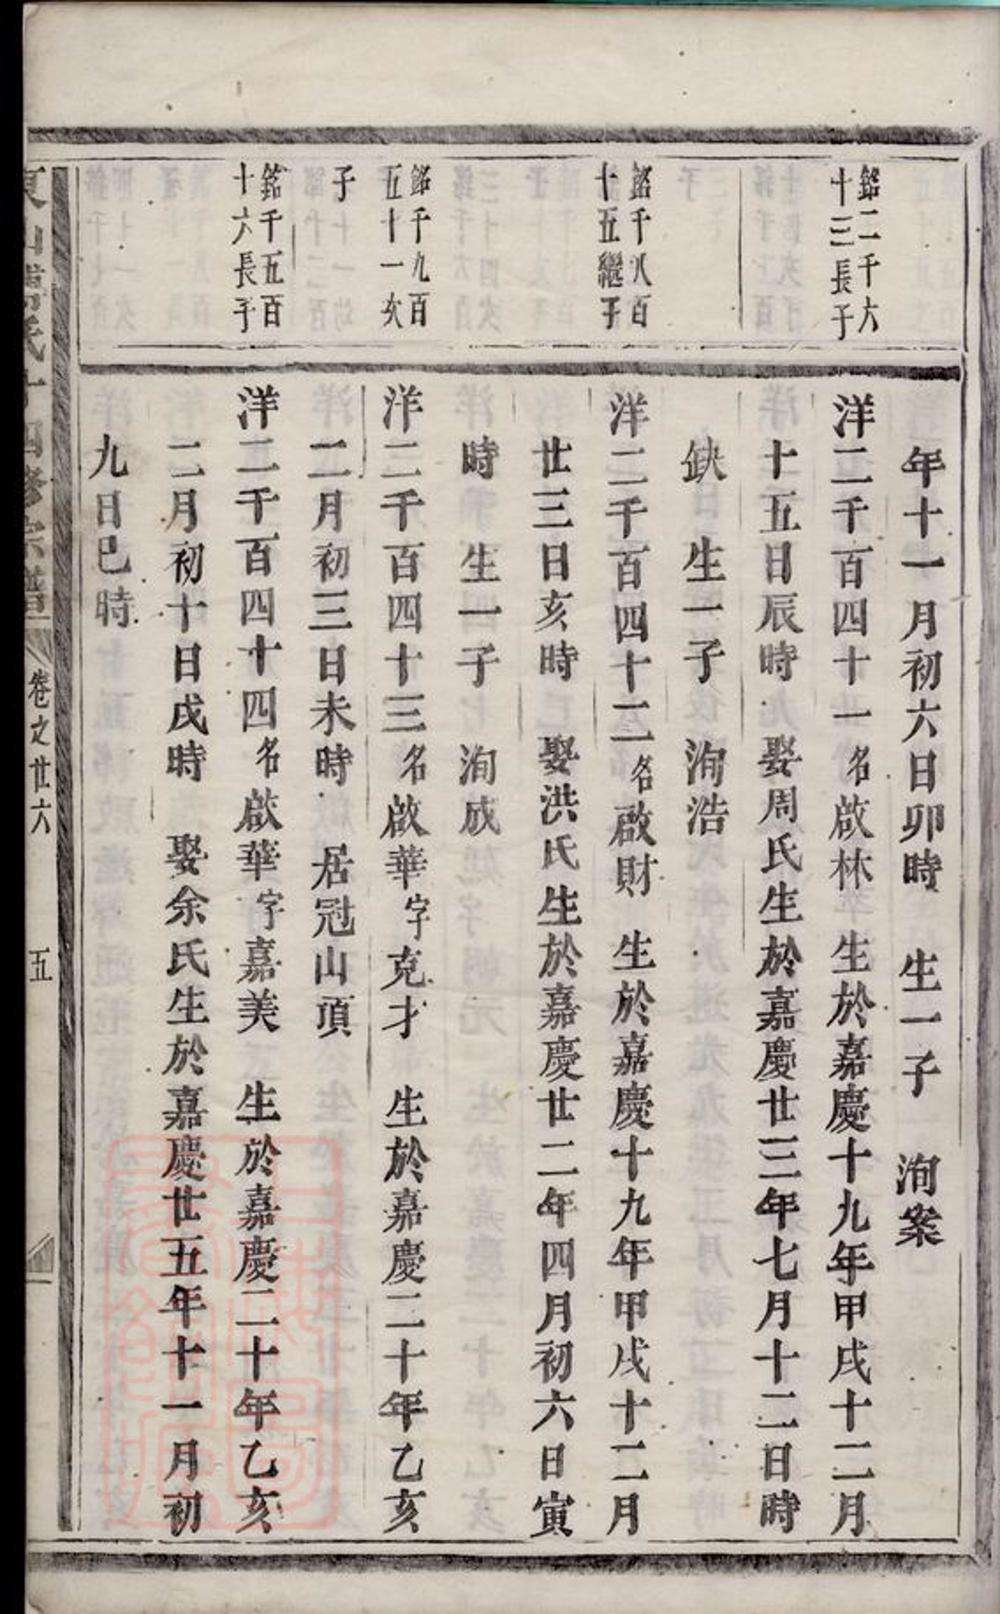 年十一月初六日卯時　生一子　洵案
銘二千六
十三長子
洋二千百四十一名啟林　生於嘉慶十九年甲戌十二月
十五日辰時　娶周氏生於嘉慶廿三年七月十二日時
缺　生一子　洵浩
銘千八百
十五繼子
洋二千百四十二名啟財　生於嘉慶十九年甲戌十二月
廿三日亥時　娶洪氏生於嘉慶廿二年四月初六日寅
時　生一子　洵成
銘千九百
五十一次
子
洋二千百四十三名啟華字克才　生於嘉慶二十年乙亥
二月初三日未時　居冠山頂
銘千五百
十六長子
洋二千百四十四名啟華字嘉美　生於嘉慶二十年乙亥
二月初十日戌時　娶余氏生於嘉慶廿五年十一月初
九日巳時
氏十四修宗譜　卷之廿六　五